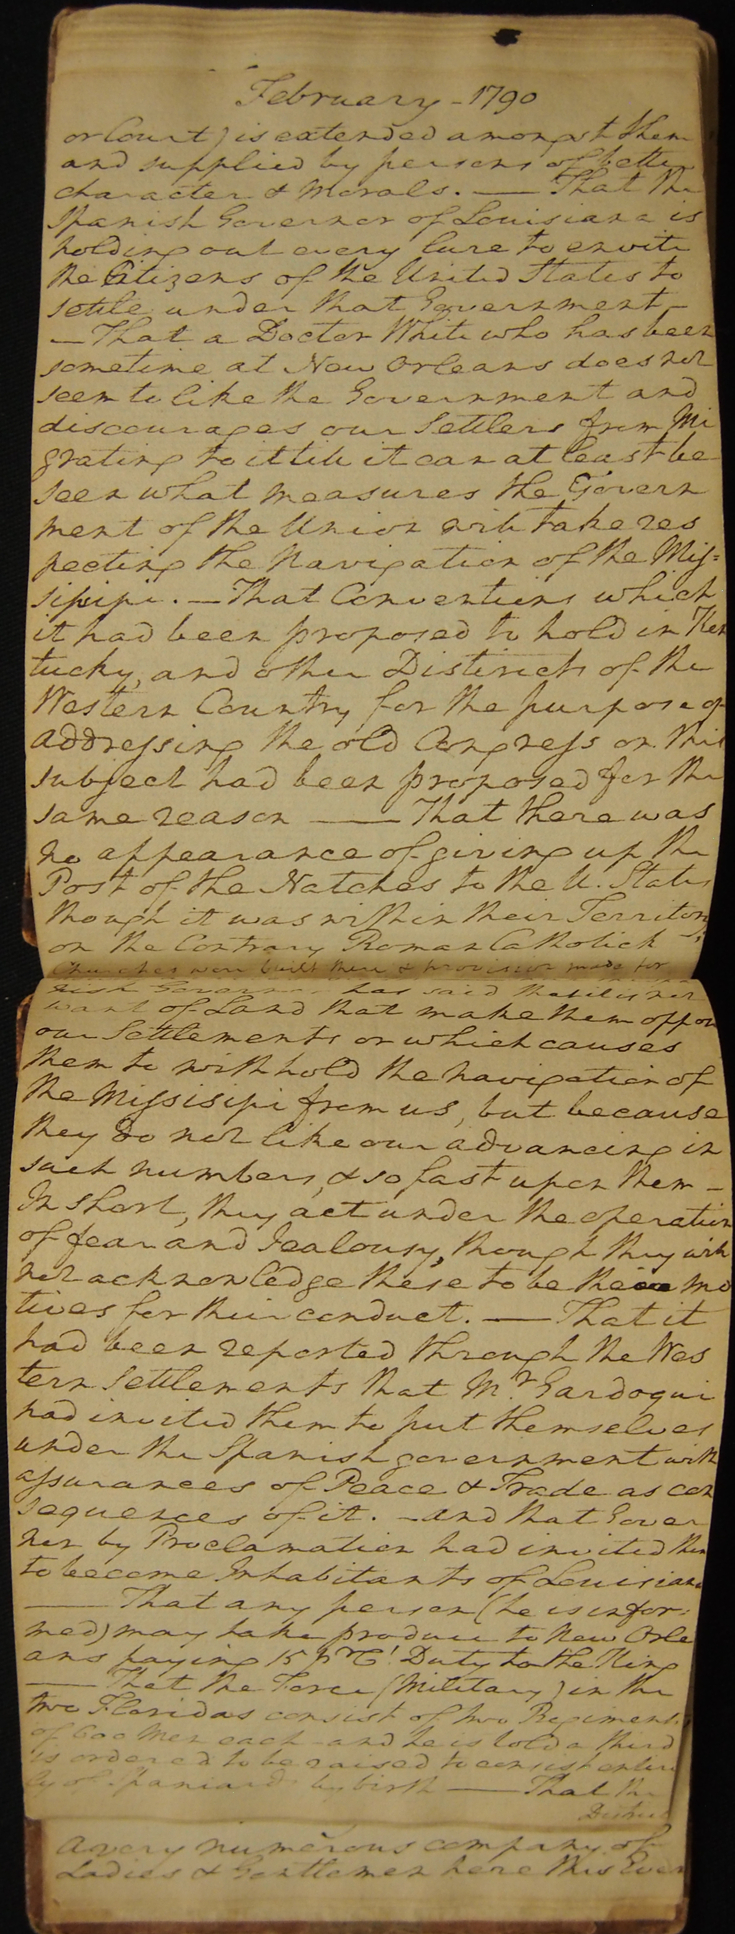 February - 1790
or Court) is extended amongst them
and supplied by persons of better
character & Morals. — That the
Spanish Governor of Louisiana is
holding out every lure to envite
the Citizens of the United States to
settle under that Government —
— That a Doctor White who has been
sometime at New Orleans does not
seem to like the Government and
discourages our Settlers from Mi
grating to it till it can at least be
seen what measures the Govern
ment of the Union will take res
pecting the Navigation of the Mis=
sisipi. — That Conventions which
it had been proposed to hold in Ken
tucky, and other Districts of the
Western Country, for the purpose of
addressing the old Congress on this
subject had been proposed for the
same reason — That there was
no appearance of giving up the
Post of the Natches to the U. States
though it was within their Territory
on the Contrary Roman Catholick
Churches were built there & provision made for
Governr has said that it is not
want of Land that make them oppose
our Settlements or which causes
them to withhold the navigation of
the Missisipi from us, but because
they do not like our advancing in
such numbers, & so fast upon them —
In short, they act under the operation
of fear and Jealousy, though they will
not acknowledge these to be the mo
tives for their conduct. — That it
had been reported through the Wes
tern Settlements that Mr. Gardoqui
had invited them to put themselves
under the Spanish government with
assurances of Peace & Trade as con
sequences of it. — and that Gover
ner by Proclamation had invited them
to become Inhabitants of Louisiana
— That any person (he is infor=
med) may take produce to New Orle
ans paying 15 pr. Ct. Duty to the King
— That the Force (Military) in the
two Floridas consist of two Regiments
of 600 Men each - and he is told a third
is ordered to be raised to consist entire
ly of Spaniards by birth — That the
District
a very numerous company of
Ladies & Gentlemen here this Even